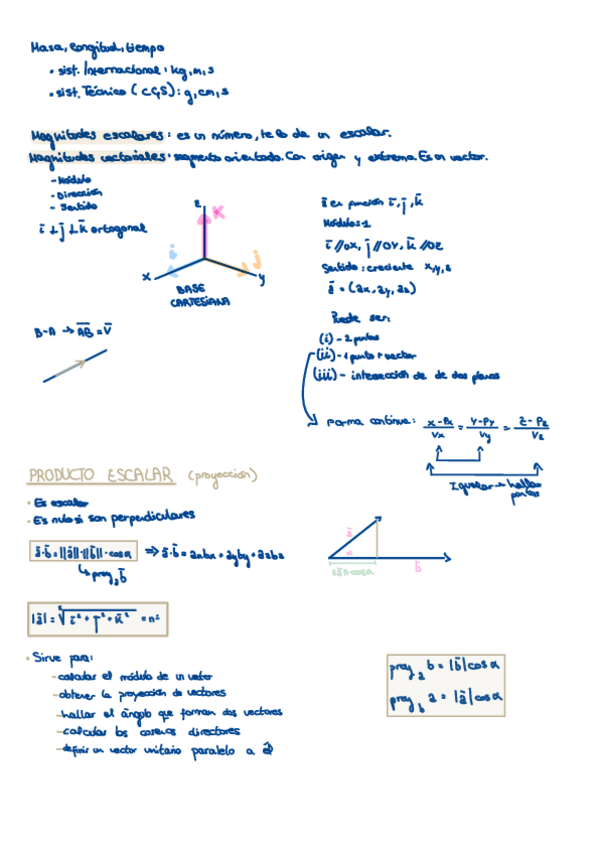 Masa, longitud, tiempo
• sist. Internacional: kg, m, s
• sist. Técnico (CGS): g, cm, s
Magnitudes escalares: es un número, te lo da un escalar.
Magnitudes vectoriales: segmento orientado. Con origen y extremo. Es un vector.
- Módulo
- Dirección
- Sentido
i ⊥ j ⊥ k ortogonal
z
k
i
j
x
y
BASE
CARTESIANA
B-A → AB = V
ā en función ī, j̄, k̄
Módulo=1
ī // OX, j̄ // OY, k̄ // OZ
Sentido: creciente x,y,z
ā = (ax, ay, az)
Puede ser:
(i) - 2 puntos
(ii) - 1 punto + vector
(iii) - intersección de de dos planos
Forma continua: x-Px/Vx = y-Py/Vy = z-Pz/Vz
Igualar → hallar
puntos
PRODUCTO ESCALAR (proyección)
• Es escalar
• Es nulo si son perpendiculares
ā·b̄ = ||ā||·||b̄||·cosα ⇒ ā·b̄ = axbx + ayby + azbz
↳ proyₐ b̄
ā
α
b̄
|ā|·cosα
|ā| = √ī² + j̄² + k̄² = nº
• Sirve para:
- calcular el módulo de un vector
- obtener la proyección de vectores
- hallar el ángulo que forman dos vectores
- calcular los cosenos directores
- definir un vector unitario paralelo a él
proy a b = |b̄| cosα
proy b a = |ā| cosα